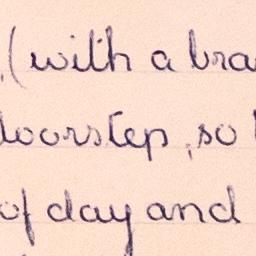 (with a bra
doorstep, so
of day and